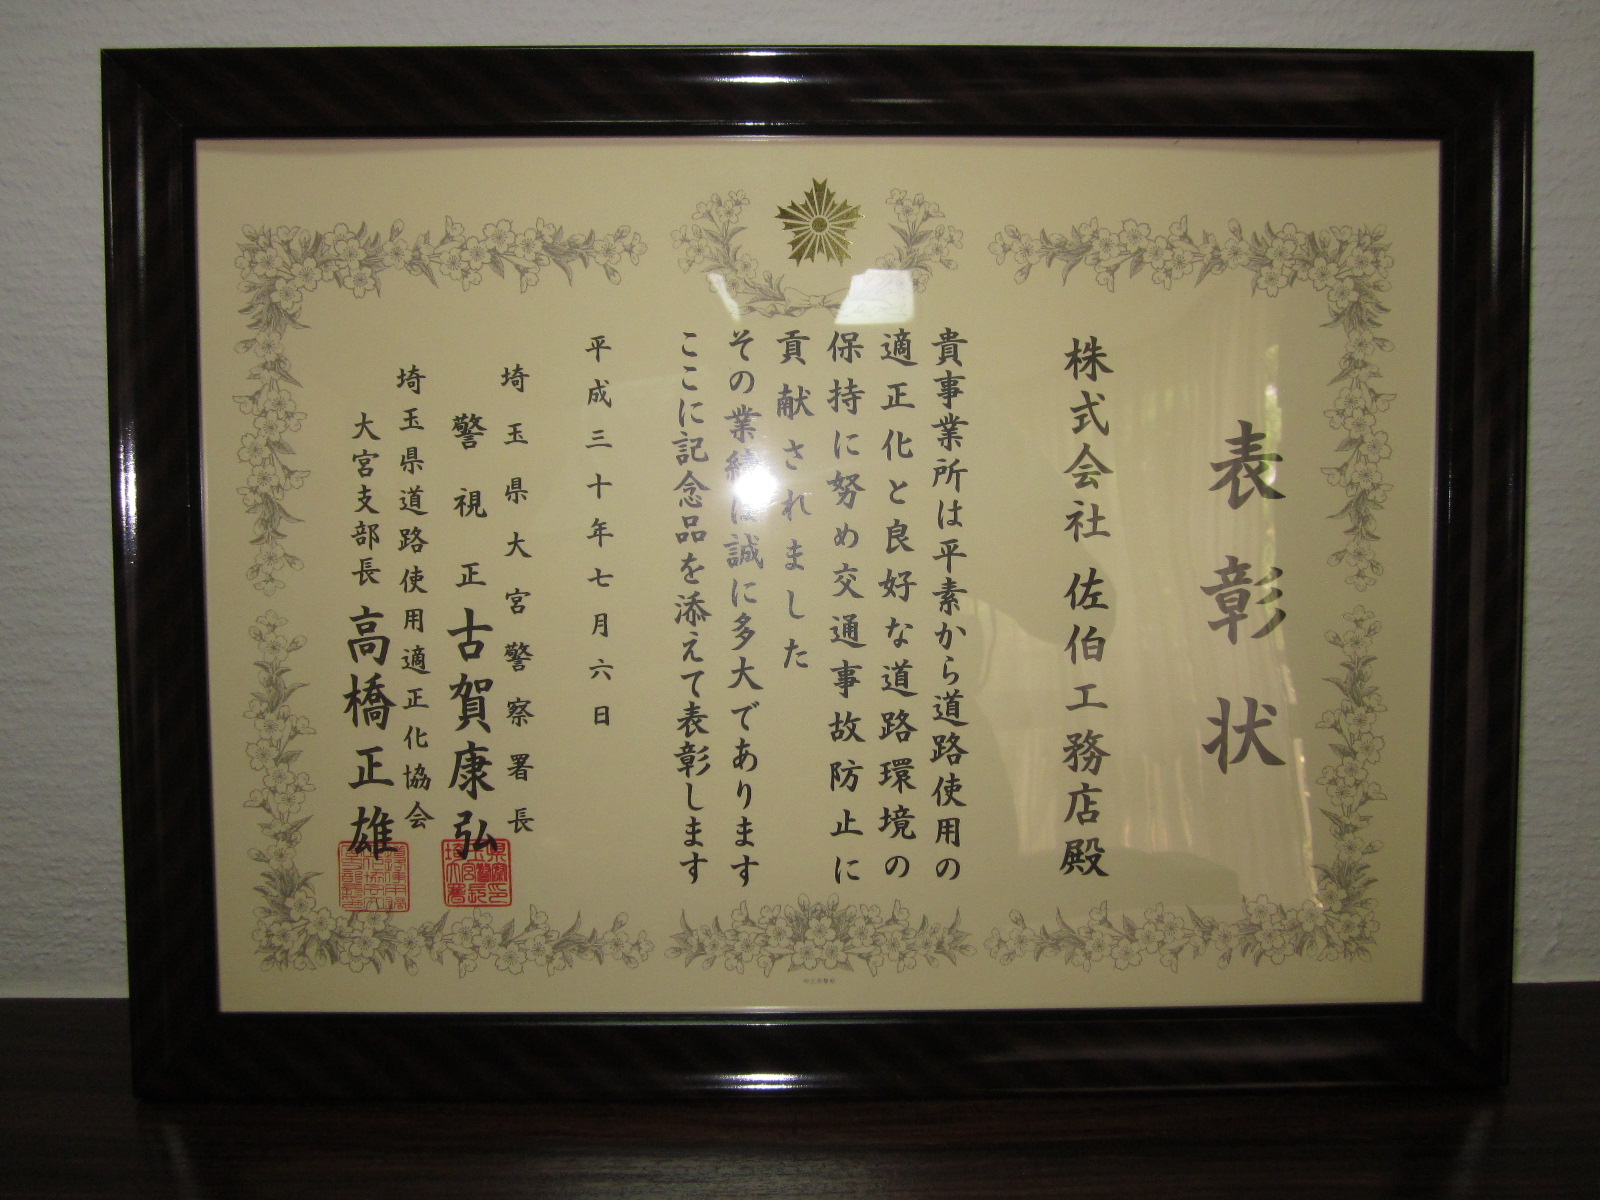 表彰状
株式会社 佐伯工務店殿
貴事業所は平素から道路使用の
適正化と良好な道路環境の
保持に努め交通事故防止に
貢献されました
その業績は誠に多大であります
ここに記念品を添えて表彰します
平成三十年七月六日
埼玉県大宮警察署長
警視正 古賀康弘
埼玉県道路使用適正化協会
大宮支部長 高橋正雄